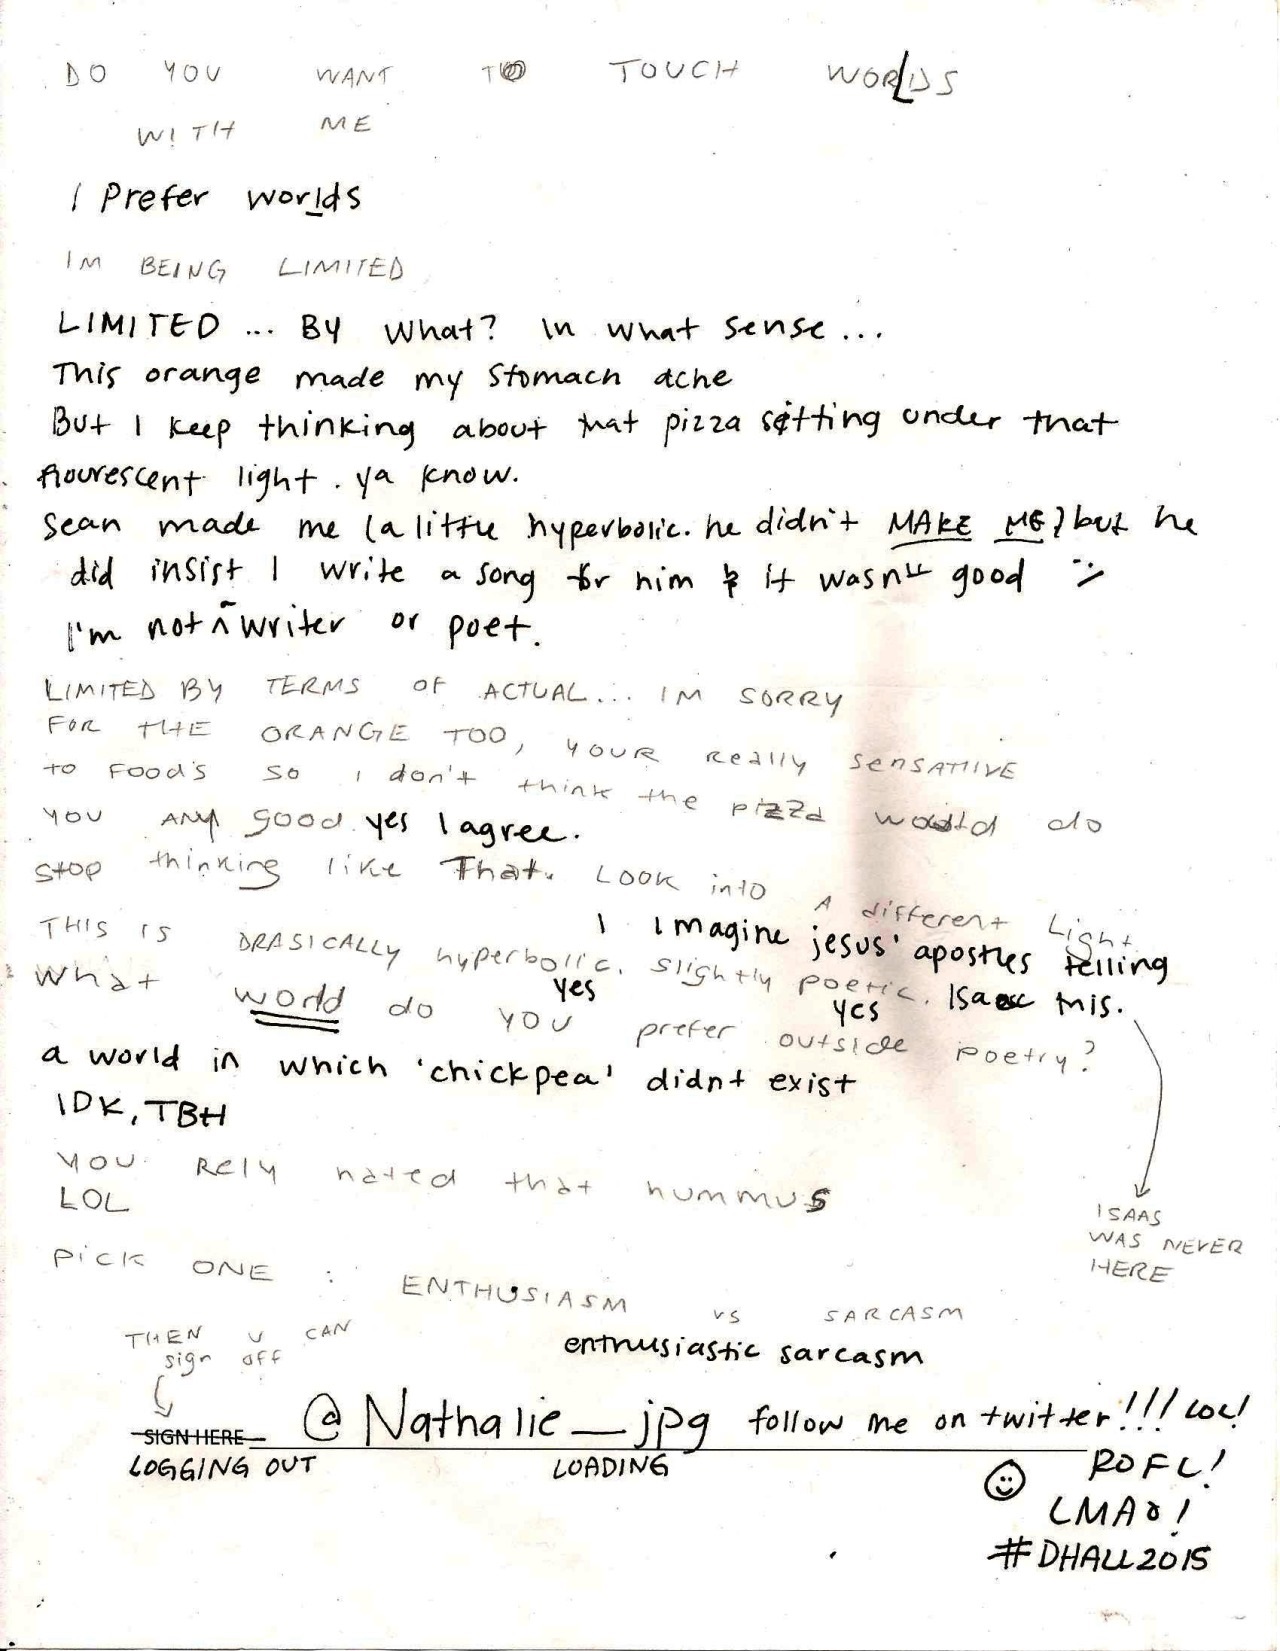 DO YOU WANT TO TOUCH WORLDS
WITH ME
I Prefer worlds
IM BEING LIMITED
LIMITED ... BY what? In what sense...
This orange made my stomach ache
But I keep thinking about that pizza sitting under that
flourescent light. ya know.
Sean made me (a little hyperbolic. he didn't MAKE ME) but he
did insist I write a song for him & it wasn't good :/
I'm not a writer or poet.
LIMITED BY TERMS OF ACTUAL... IM SORRY
FOR THE ORANGE TOO, YOUR REAlly SENSATIIVE
to FOODS SO I don't think the pizza would do
YOU ANY good. yes I agree.
Stop thinking like That. LOOK into A different Light.
I Imagine jesus' apostles telling
Isaac this.
THIS IS DRASICALLY hyperbolic. slightly poetic.
yes yes
What world do YOU prefer outside poetry?
a world in which 'chickpea' didnt exist
IDK, TBH
YOU RElY hated that hummus
LOL
ISAAS
WAS NEVER
HERE
PiCK ONE : ENTHUSIASM VS SARCASM
THEN U CAN
sign off
enthusiastic sarcasm
SIGN HERE @Nathalie_jpg follow me on twitter!!! LOL!
LOGGING OUT LOADING
ROFL!
LMAO!
#DHALL2015